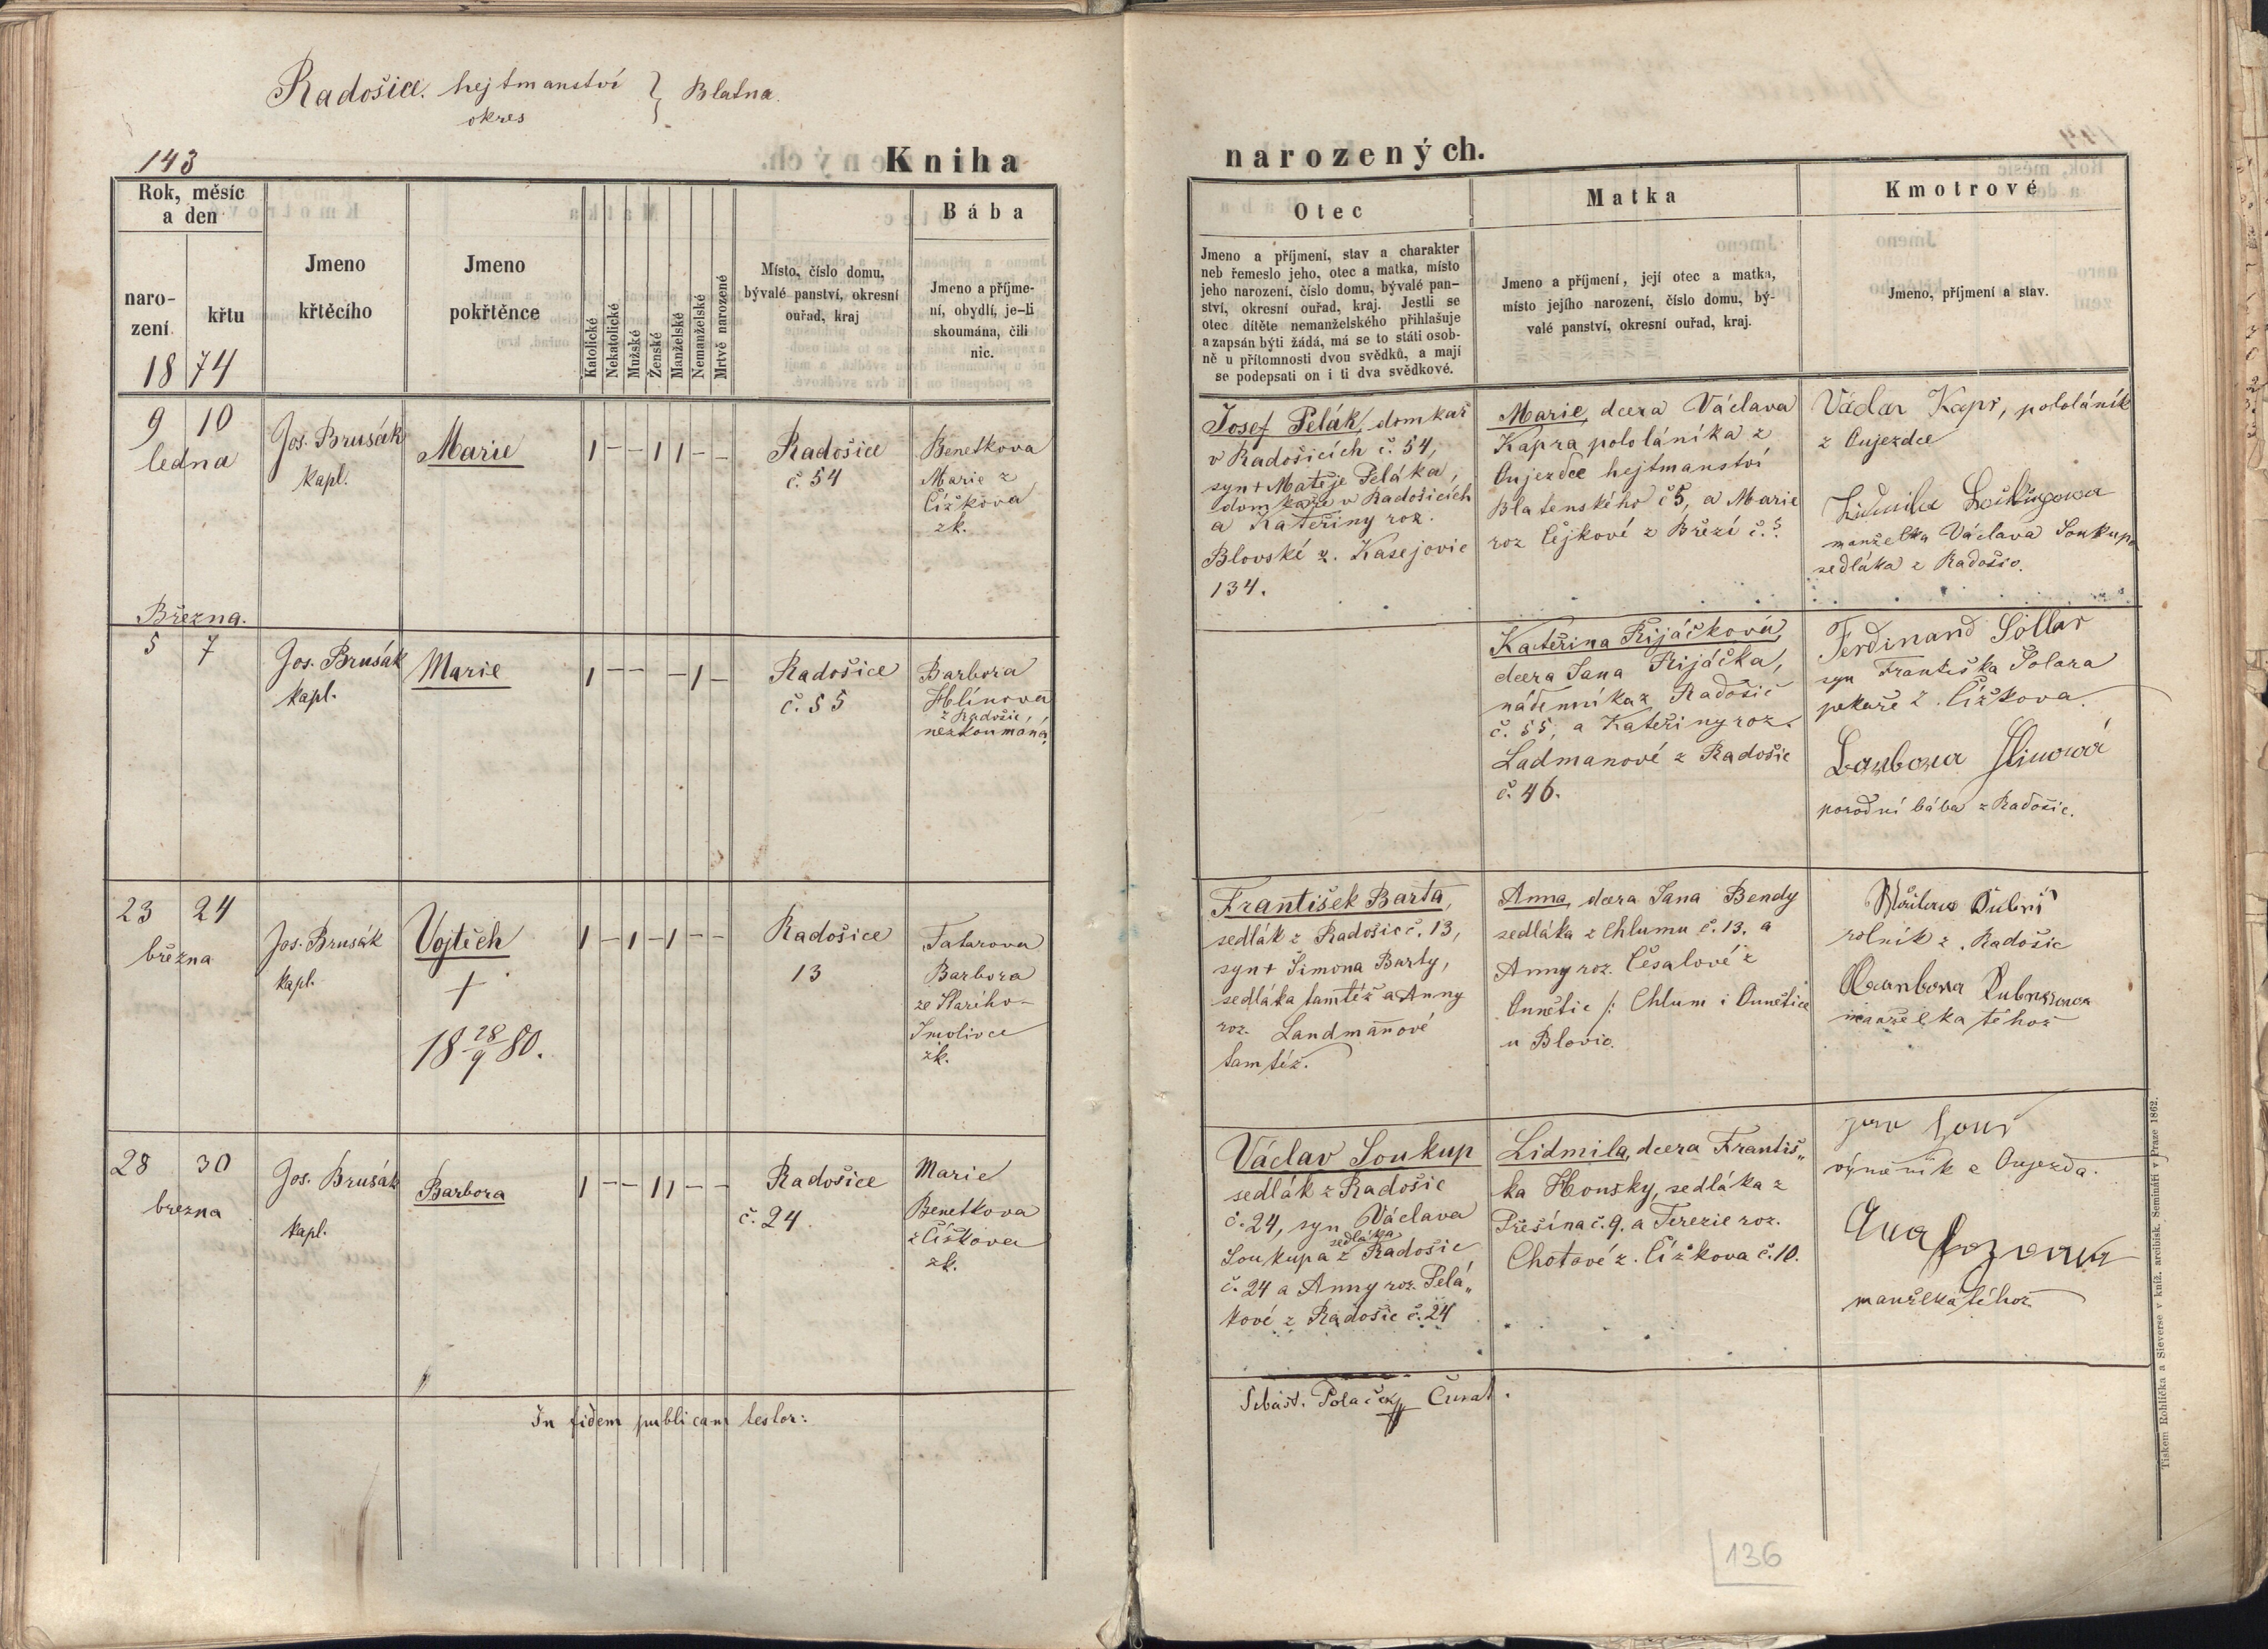 Radošice. hejtmanství } Blatna.
okres
143
Kniha narozených.
Rok, měsíc
a den
naro-
zení
křtu
1874
Jmeno
křtěcího
Jmeno
pokřtěnce
Katolické
Nekatolické
Mužské
Ženské
Manželské
Nemanželské
Mrtvě narozené
Místo, číslo domu,
bývalé panství, okresní
ouřad, kraj
Bába
Jmeno a příjme-
ní, obydlí, je-li
skoumána, čili
nic.
Otec
Jmeno a příjmení, stav a charakter
neb řemeslo jeho, otec a matka, místo
jeho narození, číslo domu, bývalé pan-
ství, okresní ouřad, kraj. Jestli se
otec dítěte nemanželského přihlašuje
a zapsán býti žádá, má se to státi osob-
ně u přítomnosti dvou svědků, a mají
se podepsati on i ti dva svědkové.
Matka
Jmeno a příjmení, její otec a matka,
místo jejího narození, číslo domu, bý-
valé panství, okresní ouřad, kraj.
Kmotrové
Jmeno, příjmení a stav.
9 10
ledna
Jos. Brusák
kapl.
Marie
1 — — 1 1 — —
Radošice
č. 54
Benetkova
Marie z
Čížkova
zk.
Josef Pelák, domkař
v Radošicích č. 54,
syn + Matěje Peláka,
domkaře v Radošicích
a Kateřiny roz.
Blovské z. Kasejovic
134.
Marie, dcera Václava
Kapra pololáníka z
Oujezdce hejtmanství
Blatenského č 5, a Marie
roz Čejkové z Březí č. 5.
Václav Kapr, pololáník
z Oujezdce
Lidmila
manželka Václava Soukupa
sedláka z Radošic.
Března.
5 7
Jos. Brusák
kapl.
Marie
1 — — — 1 —
Radošice
č. 55
Barbora
Hlínova
z Radošic,
nezkoumaná
Kateřina Řijáčková,
dcera Jana Řijáčka,
nádenníka z Radošic
č. 55, a Kateřiny roz.
Ladmanové z Radošic
č. 46.
Ferdinand Sollar
syn Františka Solara
pekaře z. Čížkova.
Barbora Hlinová
porodní bába z Radošic.
23 24
března
Jos. Brusák
kapl.
Vojtěch
+
18 28/9 80.
1 — 1 — 1 — —
Radošice
13
Tatarova
Barbora
ze Starího-
Smolivce
zk.
František Barta,
sedlák z Radošic č. 13,
syn + Šimona Barty,
sedláka tamtéž a Anny
roz. Landmanové
tamtéž.
Anna, dcera Jana Bendy
sedláka z Chlumu č. 13. a
Anny roz. Česalové z
Ounětic /: Chlum i Ounětice
u Blovic.
rolník z. Radošic
manželka téhož
28 30
března
Jos. Brusák
kapl.
Barbora
1 — — 1 1 — —
Radošice
č. 24.
Marie
Benetkova
z Čížkova
zk.
Václav Soukup
sedlák z Radošic
č. 24, syn Václava
sedláka
Soukupa z Radošic
č. 24 a Anny roz. Pelá„
kové z Radošic č. 24
Lidmila, dcera Františ„
ka Housky, sedláka z
Přešína č. 9. a Terezie roz.
Chotové z. Čížkova č. 10.
výměník z Oujezda.
manželka téhož
In fidem publicam testor:
Sebast. Polačeky Curat.
136
Tiskem Rohlíčka a Sieverse v kníž. arcibisk. Semináři v Praze 1862.